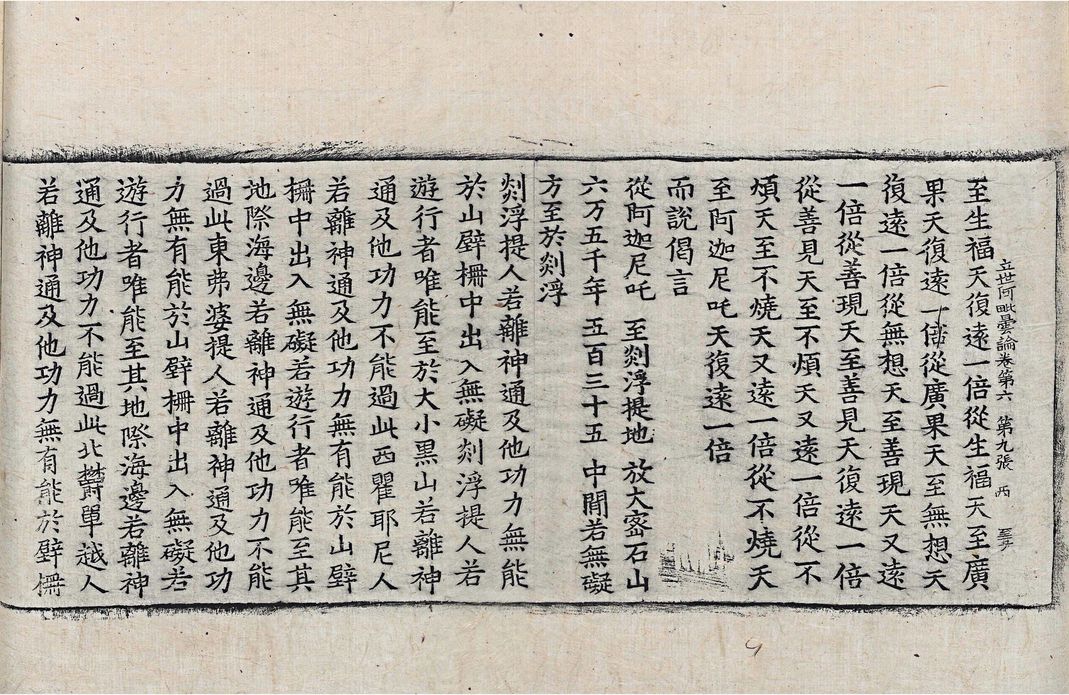 立世阿毗曇論卷第六 第九張 丙
至生福天復遠一倍從生福天至廣
果天復遠一倍從廣果天至無想天
復遠一倍從無想天至善現天又遠
一倍從善現天至善見天復遠一倍
從善見天至不煩天又遠一倍從不
煩天至不燒天又遠一倍從不燒天
至阿迦尼吒天復遠一倍
而說偈言
從阿迦尼吒 至剡浮提地 放大密石山
六万五千年 五百三十五 中閒若無礙
方至於剡浮
剡浮提人若離神通及他功力無能
於山壁柵中出入無礙剡浮提人若
遊行者唯能至於大小黑山若離神
通及他功力不能過此西瞿耶尼人
若離神通及他功力無有能於山壁
柵中出入無礙若遊行者唯能至其
地際海邊若離神通及他功力不能
過此東弗婆提人若離神通及他功
力無有能於山壁柵中出入無礙若
遊行者唯能至其地際海邊若離神
通及他功力不能過此北欝單越人
若離神通及他功力無有能於壁柵